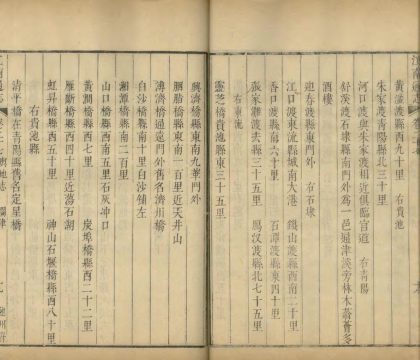 朱家渡縣青陽三十里
河口渡與朱家渡相近俱臨官道 右青陽
舒溪渡石埭縣南門外為一邑通津渡旁林木多
酒樓
迎春渡縣東門外 右石埭
江口渡東流縣城南大港 山渡縣西南二十里
香口渡縣南六十里 石潭渡縣東四十里
張家灘渡縣東北三十五里 馬汊渡縣北七十五里
右東流
靈芝橋貴池縣東三十五里
興濟橋縣東南九華門外
胭脂橋縣東南一百里近天井山
溥濟橋通遠門外舊名濟川橋
白沙橋縣南八十里白沙舖左
湘潭橋縣南二百里
山口橋縣西南五里石灰冲口
黃澗橋縣西七里 炭埠橋縣西二十二里
雁斷橋縣西四十里近蕩石湖
虹昇橋縣西六十五里 神山石堰橋縣西八十里
右貴池縣
清平橋在青陽縣舊名定星橋